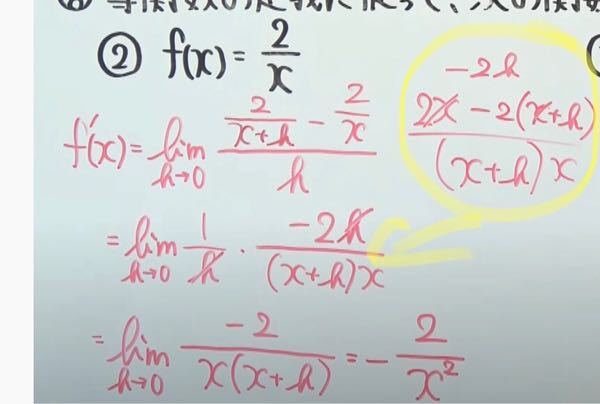 ② f(x) = 2/x
f'(x) = lim h→0 (2/(x+h) - 2/x)/h
-2h
2x - 2(x+h)
(x+h)x
= lim h→0 1/h · -2h/((x+h)x)
= lim h→0 -2/(x(x+h)) = - 2/x²